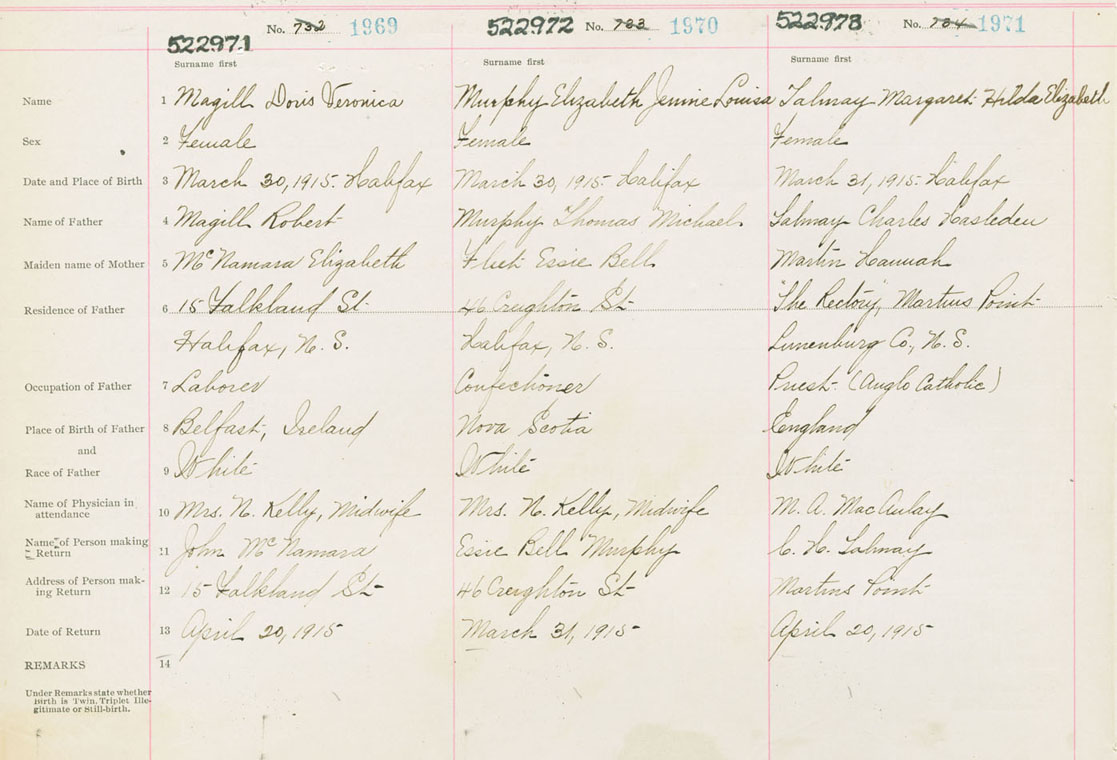 522971 No. 732 1969 522972 No. 783 1970 522973 No. 784 1971
Surname first Surname first Surname first
Name 1 Magill Doris Veronica Murphy Elizabeth Jennie Louisa Margaret Hilda Elizabeth
Sex 2 Female Female Female
Date and Place of Birth 3 March 30, 1915. Halifax March 30, 1915. Halifax March 31, 1915. Halifax
Name of Father 4 Magill Robert Murphy Thomas Michael Charles
Maiden name of Mother 5 McNamara Elizabeth Essie Bell Martin Hannah
Residence of Father 6 15 Falkland St 46 Creighton St "The Rectory", Martins Point
Halifax, N. S. Halifax, N. S. Lunenburg Co., N. S.
Occupation of Father 7 Laborer Confectioner Priest (Anglo Catholic)
Place of Birth of Father 8 Belfast, Ireland Nova Scotia England
and
Race of Father 9 White White White
Name of Physician in
attendance 10 Mrs. N. Kelly, Midwife Mrs. N. Kelly, Midwife M. A. MacAulay
Name of Person making
Return 11 John McNamara Essie Bell Murphy C. H.
Address of Person mak-
ing Return 12 15 Falkland St 46 Creighton St Martins Point
Date of Return 13 April 20, 1915 March 31, 1915 April 20, 1915
REMARKS 14
Under Remarks state whether
Birth is Twin, Triplet Ille-
gitimate or Still-birth.